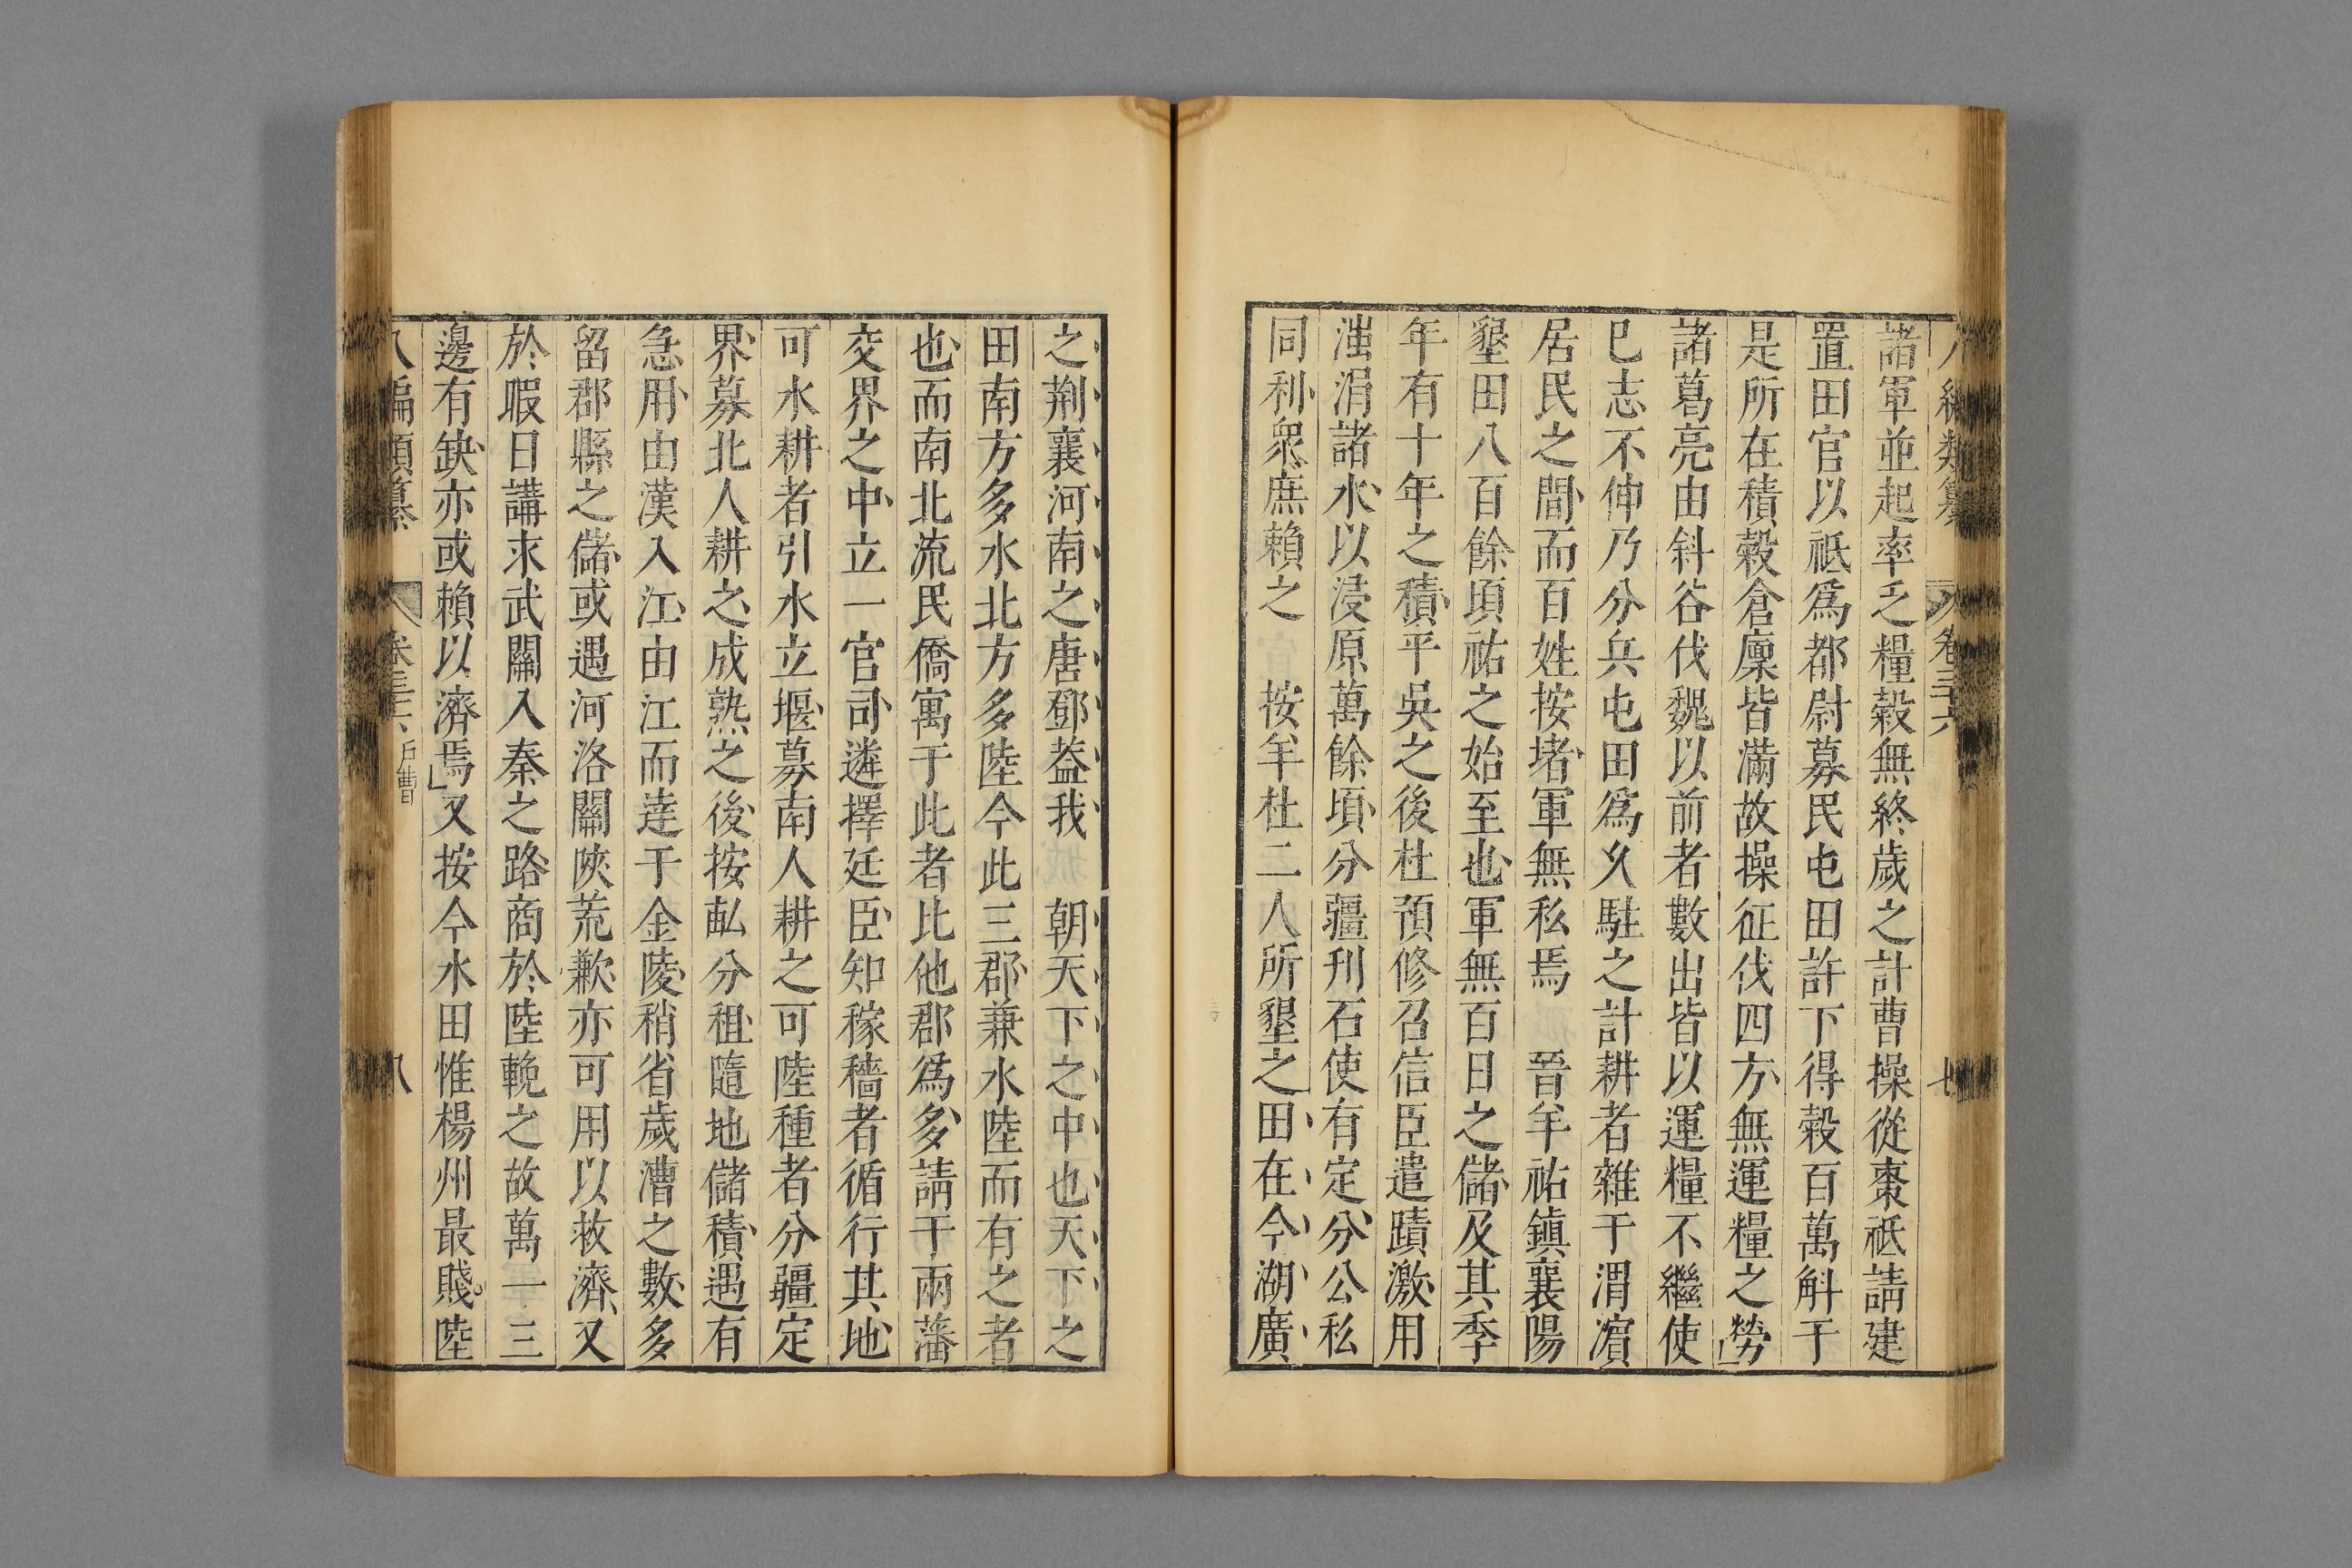 諸軍並起率乏糧榖無終歲之計曹操從棗祗請建
置田官以祗爲都尉募民屯田許下得榖百萬斛于
是所在積榖倉廩皆滿故操征伐四方無運糧之勞
諸葛亮由斜谷伐魏以前者數出皆以運糧不繼使
已志不伸乃分兵屯田爲久駐之計耕者雜于渭濵
居民之間而百姓按堵軍無私焉　晉羊祜鎮襄陽
墾田八百餘頃祜之始至也軍無百日之儲及其季
年有十年之積平吳之後杜預修召信臣遺蹟激用
滍淯諸水以浸原萬餘頃分疆刋石使有定分公私
同利衆庶賴之　按羊杜二人所墾之田在今湖廣
之荆襄河南之唐鄧葢我　朝天下之中也天下之
田南方多水北方多陸今此三郡兼水陸而有之者
也而南北流民僑寓于此者比他郡爲多請于兩藩
交界之中立一官司遴擇廷臣知稼穡者循行其地
可水耕者引水立堰募南人耕之可陸種者分疆定
界募北人耕之成熟之後按畝分租隨地儲積遇有
急用由漢入江由江而達于金陵稍省歲漕之數多
留郡縣之儲或遇河洛關陝荒歉亦可用以救濟又
於暇日講求武關入秦之路商於陸輓之故萬一三
邊有缺亦或賴以濟焉又按今水田惟楊州最賤陸
八編類纂　卷三十六　戶曹　八